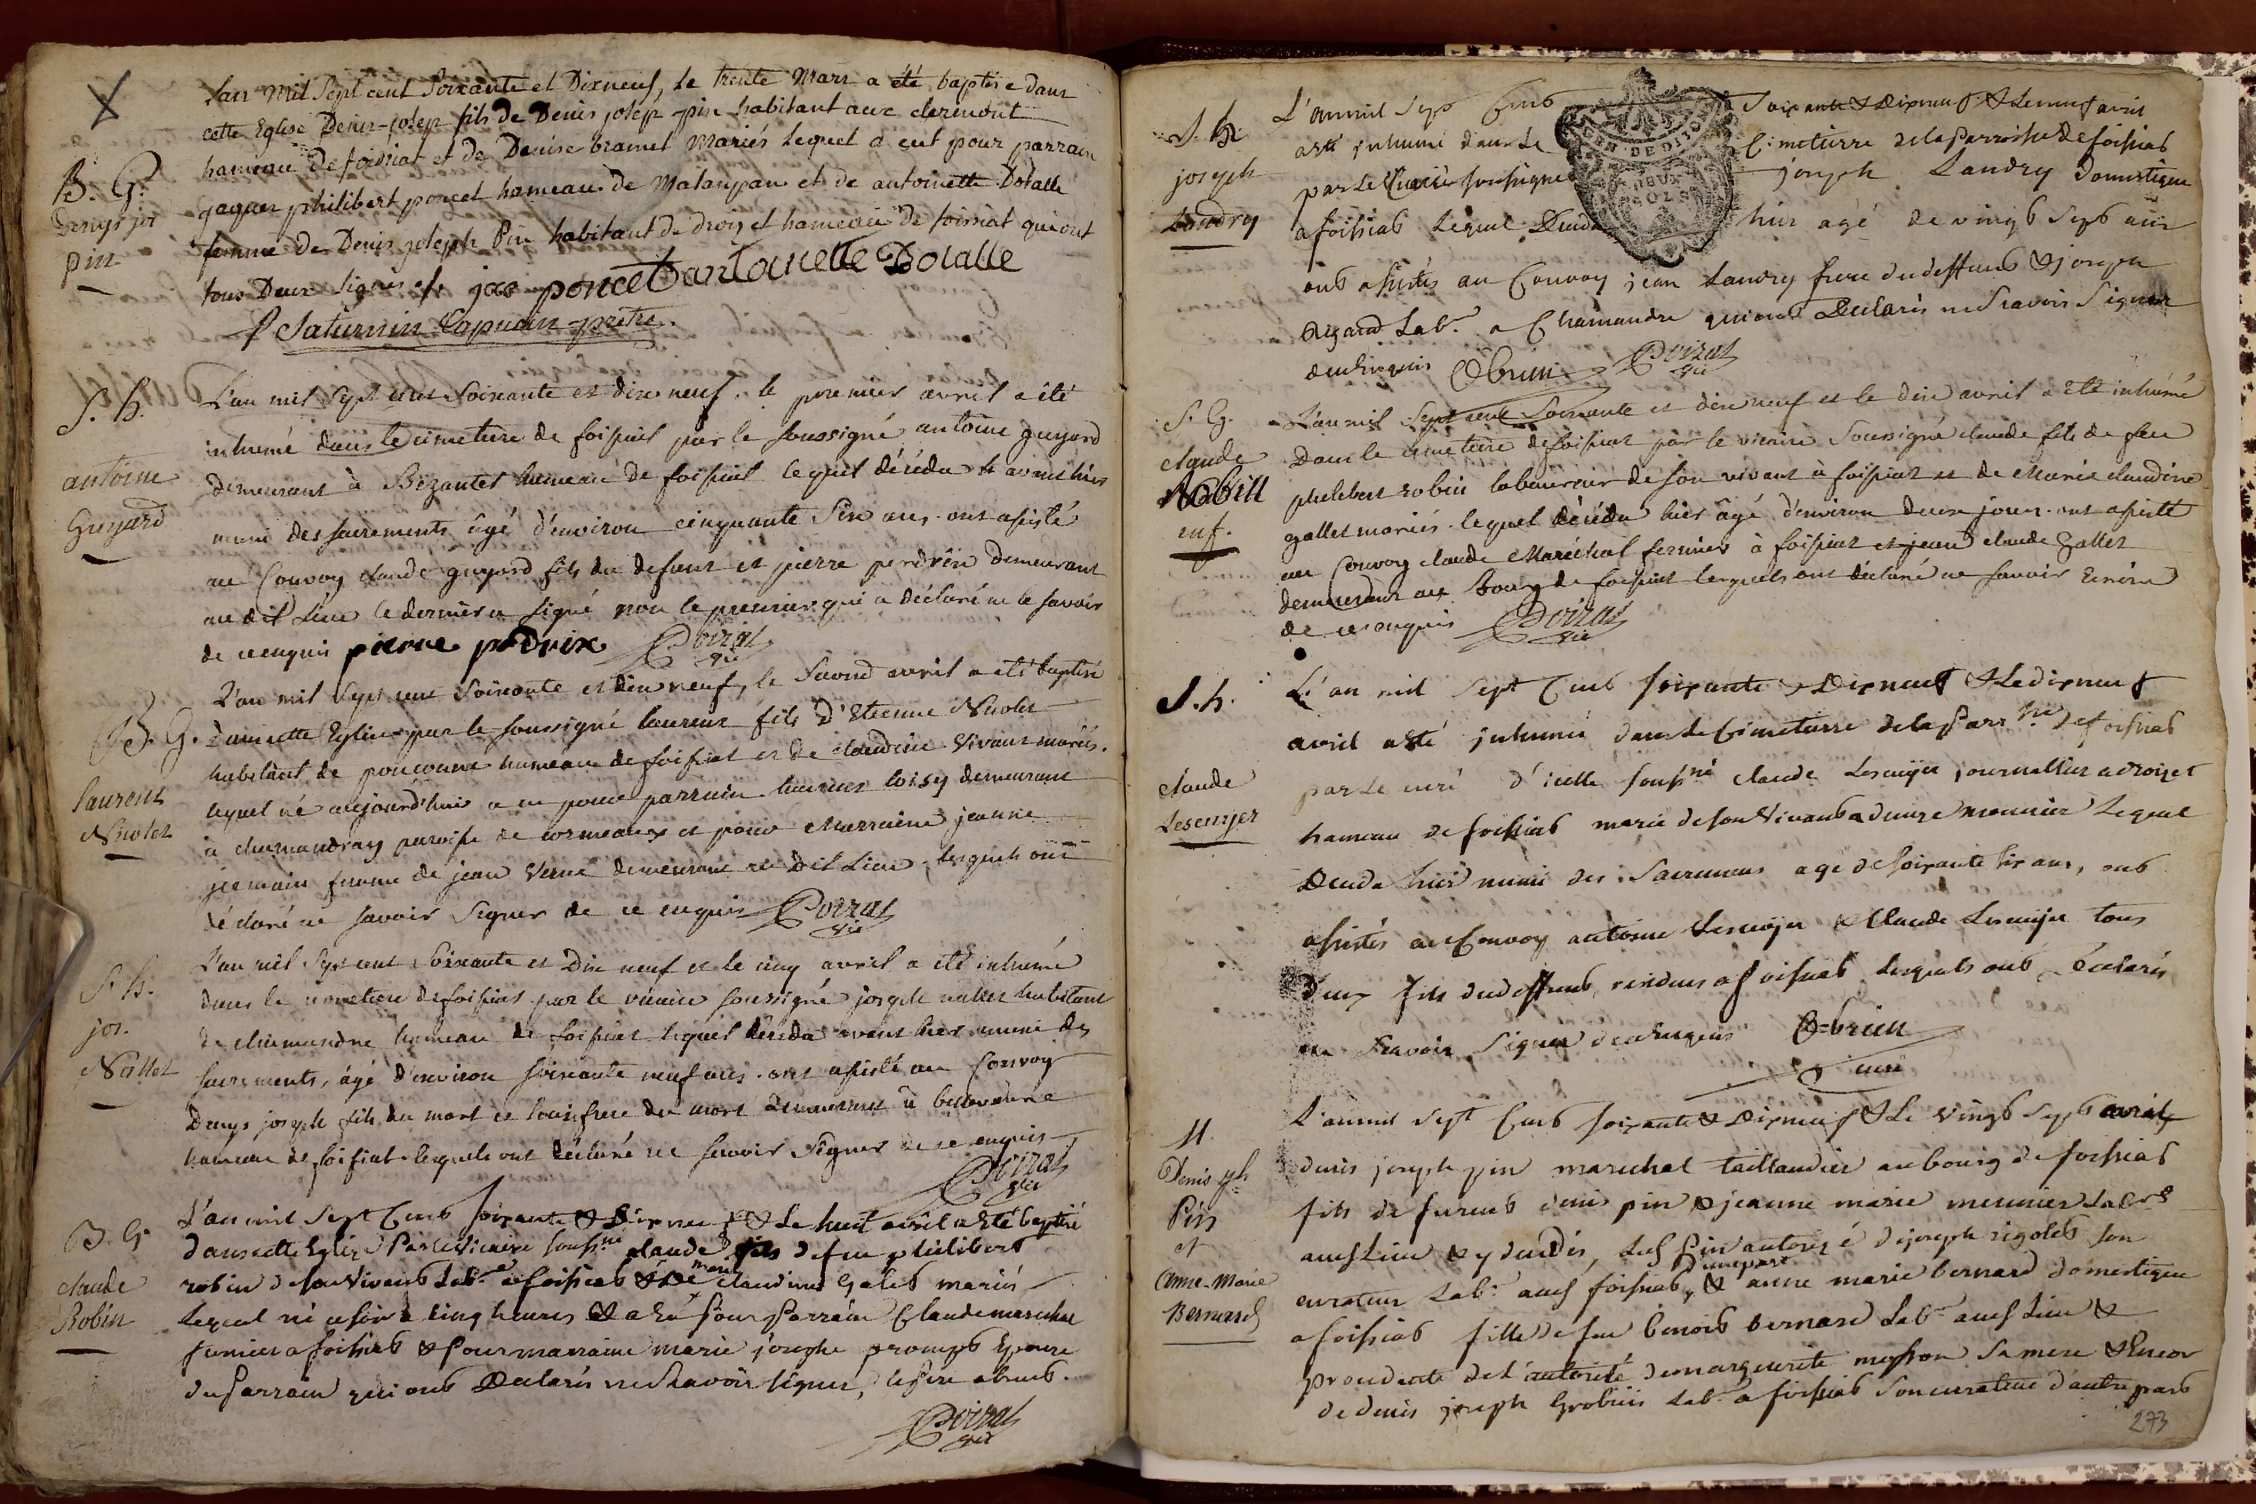 X
L'an Mil Sept cent Soixante et Dixneuf, le trente Mars a été baptisé dans
cette Eglise Denis-josep fils de Denis josep pin habitant aux clermont
hameau de foissiat et de Denise bramet Mariés lequel a eut pour parrain
B. G.
Denys jos
pin
philibert poncet hameau de Malaypau et de antoinette Dotalle
femme de Denis joseph Pin habitant de hameau de foissiat qui ont
tous Deux Signés
poncet antoinette Dotalle
f Saturnin Capucin prêtre.
S. h.
antoine
Guyard
L'an mil Sept cent Soixante et dix neuf. le premier avril a été
inhumé dans le cimetiere de foissiat par le soussigné antoine guyard
demeurant à Bezantet hameau de foissiat lequel décéda avant hier
muni des sacrements âgé d'environ cinquante Six ans. ont assisté
au Convoy claude guyard fils du defunt et pierre perdrix demeurant
au dit Lieu le dernier a signé non le premier qui a déclaré ne le savoir
de ce enquis pierre pedrix Poizat
vic
B. G.
Laurent
Nicolet
L'an mil Sept cent Soixante et dix neuf, le Second avril a été baptisé
dans cette Eglise par le soussigné laurent fils d'Etienne Nicolet
habitant de hameau de foissiat et de claudine Vivant mariés.
lequel né aujourd'hui a eu pour parrain laurent loisy demeurant
à chamandray paroisse de cormeaux et pour Marraine jeanne
jermain femme de jean Verne demeurant au Dit Lieu, lesquels ont
déclaré ne savoir Signer de ce enquis Poizat
vic
S. h.
jos.
Nallet
L'an mil Sept cent Soixante et Dix neuf et le cinq avril a été inhumé
dans le cimetiere de foissiat par le vicaire soussigné joseph nallet habitant
de chamandre hameau de foissiat lequel décéda avant hier muni des
sacrements, âgé d'environ soixante neuf ans. ont assisté au Convoy
Denys joseph fils du mort et frere du mort demeurant à
hameau de foissiat lesquels ont déclaré ne savoir Signer de ce enquis
Poizat
vic
B. G
claude
Robin
L'an mil Sept Cent soixante & Dixneuf & Le huit avril a Eté baptisé
dans cette Eglize Par le Vicaire souss.né claude fils de feu philibert
robin de son Vivant Lab.r a foissiat & De marie claudine Galet mariés
Lequel né ce soir a cinq heures & a Eu Pour Parrain Claude marechal
fermier a foissiat & Pour marraine marie josephe prompt Epouse
du Parrain qui ont Déclarés ne Sçavoir signer, le Pere absent.
Poizat
vic
S. h.
joseph
Landry
L'an mil Sept Cent Soixante & Dixneuf & Le neuf avril
a Eté inhumé dans Le Cimetierre de la Parroisse de foissiat
par Le Vicaire soussigné joseph Landry domestique
a foissiat Lequel Décéda hier agé de vingt Sept ans
GEN. DE DIJON
DEUX
SOLS
ont assistés au Convoy jean Landry frere du deffunt & joseph
Lab.r a Chamandre qui ont Déclarés ne Sçavoir Signer
de ce Enquis Obrien Poizat
vic
S. G.
claude
Robin
enf.
L'an mil Sept cent Soixante et dix neuf et le dix avril a été inhumé
Dans le cimetiere de foissiat par le vicaire Soussigné claude fils de feu
philebert robin laboureur de son vivant à foissiat et de Marie claudine
gallet mariés. lequel décéda hier âgé d'environ deux jours. ont assisté
au Convoy claude Maréchal fermier à foissiat et jean claude Gallet
demeurant au Bourg de foissiat lesquels ont déclaré ne savoir Ecrire
de ce enquis Poizat
vic
S. h.
claude
Lescuyer
L'an mil Sept Cent soixante & Dixneuf & Le dixneuf
avril a Eté inhumé dans Le Cimetierre de la Parr.sse de foissiat
par Le curé d'icelle souss.né claude Lescuyer journallier a droiset
hameau de foissiat marié de son Vivant a denise meunier Lequel
Décéda hier muni des Sacremens agé de soixante six ans, ont
assistés au Convoy antoine Lescuyer & Claude Lescuyer tous
deux fils du deffunt, résidens a foissiat lesquels ont Déclarés
ne Sçavoir Signer de ce Enquis Obrien
curé
M.
Denis jph
Pin
et
Anne-Marie
Bernard
L'an mil Sept Cent soixante & Dixneuf & Le vingt Sept avril
denis joseph pin marechal taillandier au bourg de foissiat
fils de furent denis pin & jeanne marie meunier Lab.rs
aud Lieu & y décédés, Led Pin autorizé de joseph rigolet son
curateur Lab.r aud foissiat, d'une part & anne marie bernard domestique
a foissiat fille de feu benoit bernard Lab.r aud Lieu &
procedante de L'autorité de marguerite sa mere & Encor
de denis joseph Grobiin Lab.r a foissiat son curateur d'autre part
273